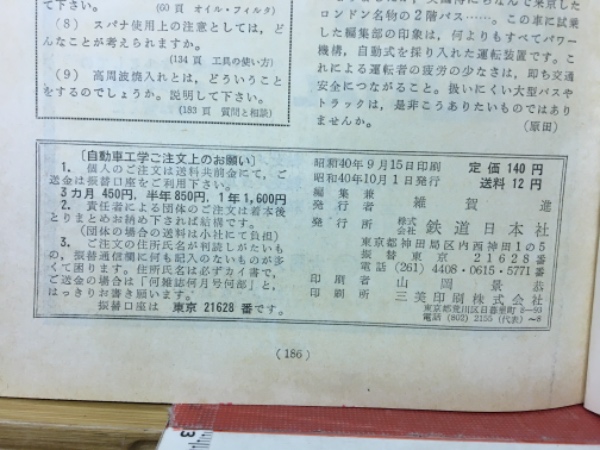 て下さい。
(60頁 オイル・フィルタ)
(8) スパナ使用上の注意としては，ど
んなことが考えられますか。
(134頁 工具の使い方)
(9) 高周波焼入れとは，どういうこと
をするのでしょうか。説明して下さい。
(183頁 質問と相談)
ロンドン名物の2階バス……。この車に試乗
した編集部の印象は，何よりもすべてパワー
機構，自動式を採り入れた運転装置です。こ
れによる運転者の疲労の少なさは，即ち交通
安全につながること。扱いにくい大型バスや
トラックは，是非こうありたいものではあり
ませんか。
(原田)
〔自動車工学ご注文上のお願い〕
1. 個人のご注文は送料共前金にて，ご
送金は振替口座をご利用下さい。
3カ月 450円，半年 850円，1年 1,600円
2. 責任者による団体のご注文は着本後
とりまとめお納め下されば結構です。
(団体の場合の送料は小社にて負担)
3. ご注文の住所氏名が判読しがたいも
の，振替通信欄に何も記入のないものが多
くて困ります。住所氏名は必ずカイ書で，
ご送金の場合は「何雑誌何月号何部」と，
はっきりお書き願います。
振替口座は 東京 21628 番です。
昭和40年9月15日印刷 定価 140円
昭和40年10月1日発行 送料 12円
編集兼
発行者 雑賀進
発行所 株式会社 鉄道日本社
東京都神田局区内西神田1の5
振替東京 21628番
電話 (261) 4408・0615・5771番
印刷者 山岡景恭
印刷所 三美印刷株式会社
東京都荒川区日暮里町8-93
電話 (802) 2155 (代表) ~8
(186)